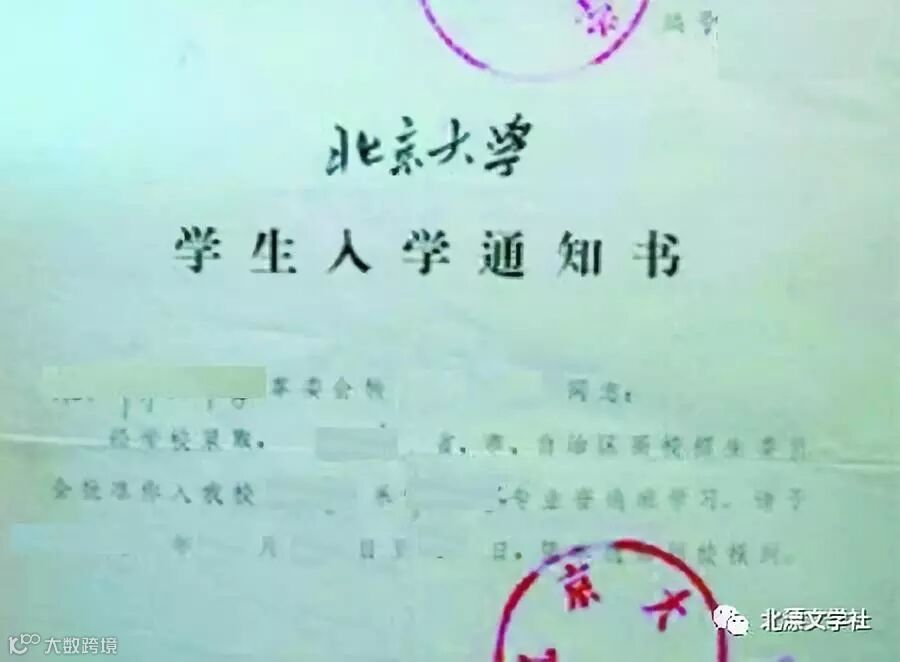 编号
北京大学
学生入学通知书
革委会转 同志：
经学校录取，省、市、自治区高校招生委员
会批准你入我校 系 专业普通班学习。请于
年 月 日至 日，
京大
北漂文学社
大数跨境